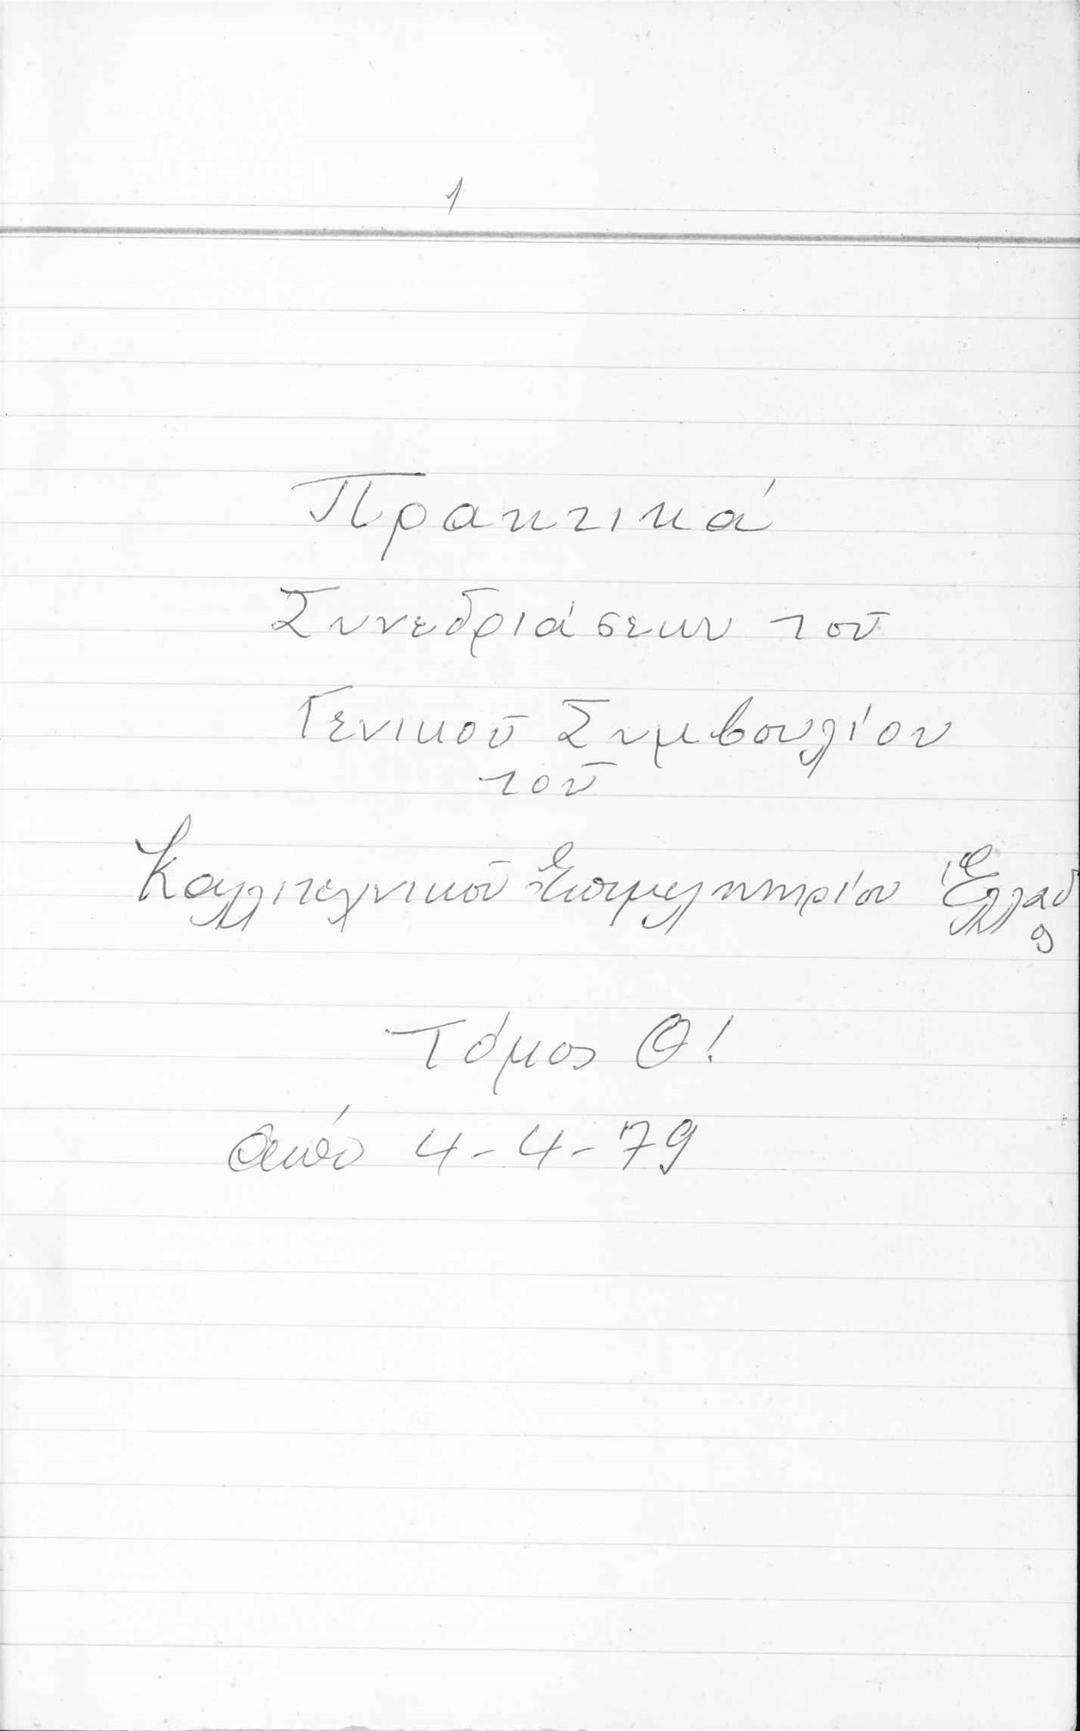 1
Πρακτικά
Συνεδριάσεων τοῦ
Γενικοῦ Συμβουλίου
τοῦ
Καλλιτεχνικοῦ Ἐπιμελητηρίου Ἑλλάδ
ος
Τόμος Θ!
ἀπό 4-4-79